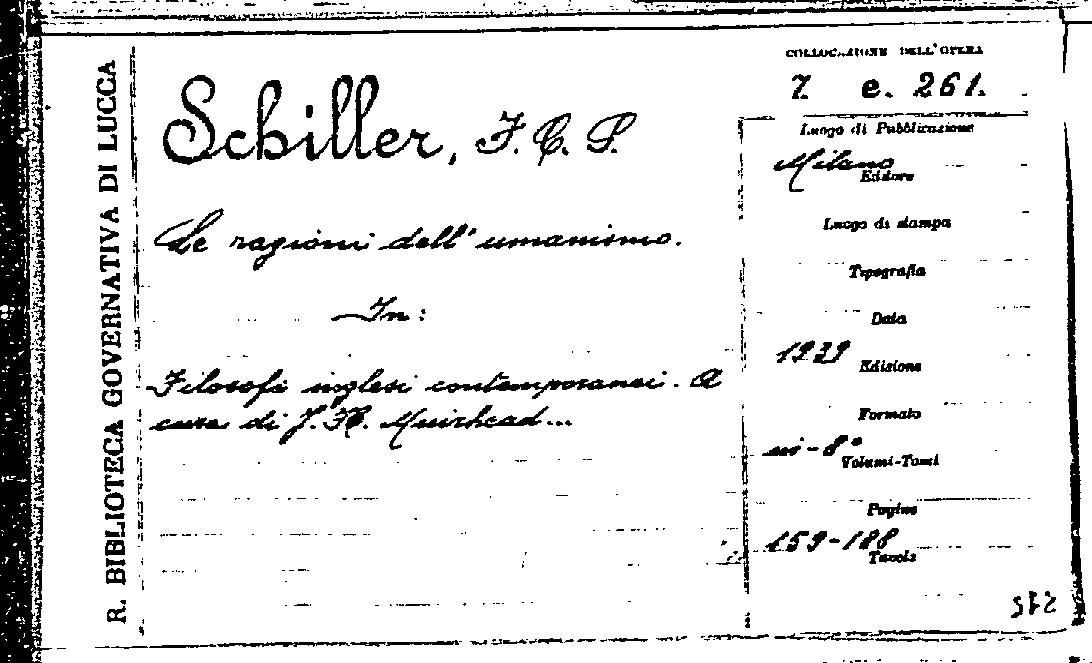 R. BIBLIOTECA GOVERNATIVA DI LUCCA
Schiller, F. C. S.
Le ragioni dell'umanismo.
In:
Filosofi inglesi contemporanei. A
cura di J. H. Muirhead...
COLLOCAZIONE DELL'OPERA
Z e. 261.
Luogo di Pubblicazione
Milano
Editore
Luogo di stampa
Tipografia
Data
1939
Edizione
Formato
in-8°
Volumi-Tomi
Pagine
159-188
Tavole